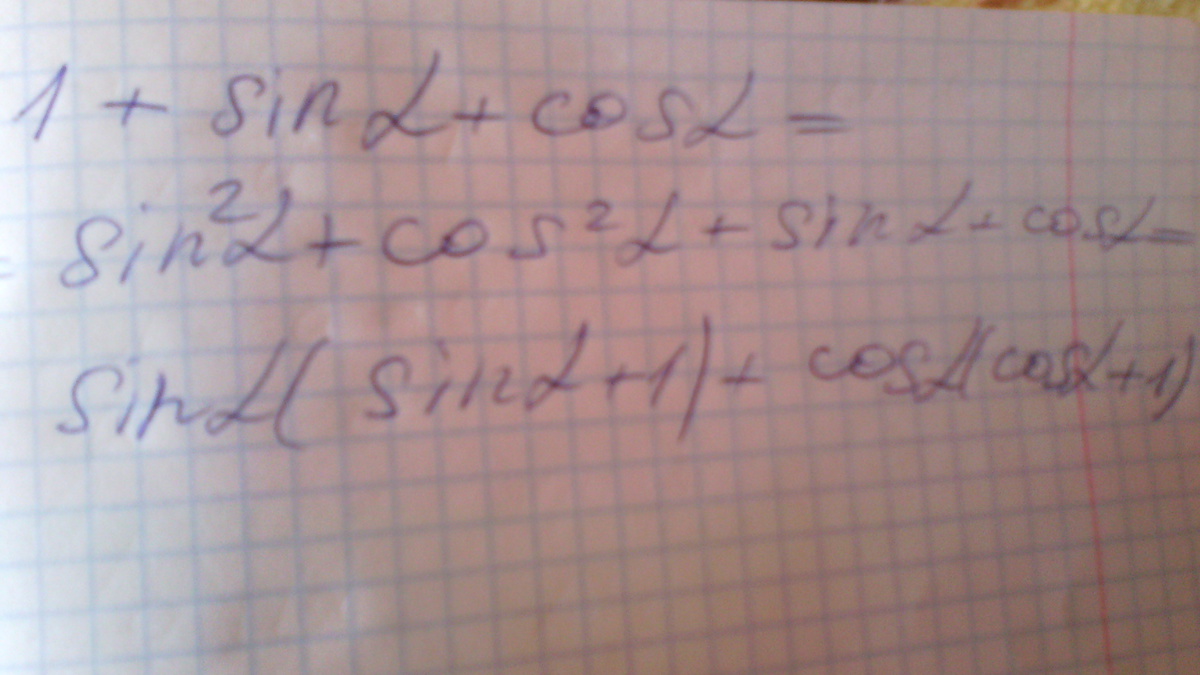 1 + sinα + cosα =
= sin²α + cos²α + sinα + cosα =
sinα(sinα+1) + cosα(cosα+1)